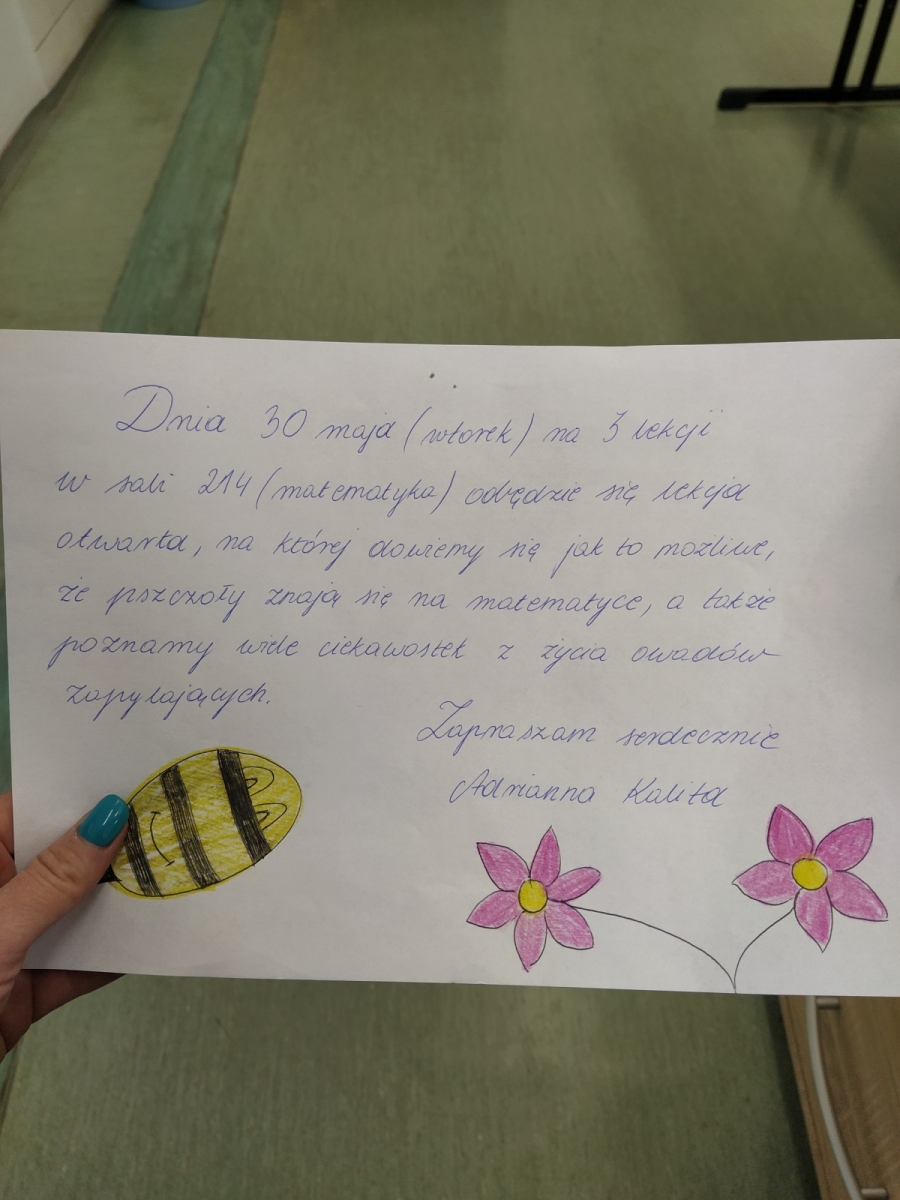 Dnia 30 maja (wtorek) na 3 lekcji
w sali 214 (matematyka) odbędzie się lekcja
otwarta, na której dowiemy się jak to możliwe,
że pszczoły znają się na matematyce, a także
poznamy wiele ciekawostek z życia owadów
zapylających.
Zapraszam serdecznie
Adrianna Kalita